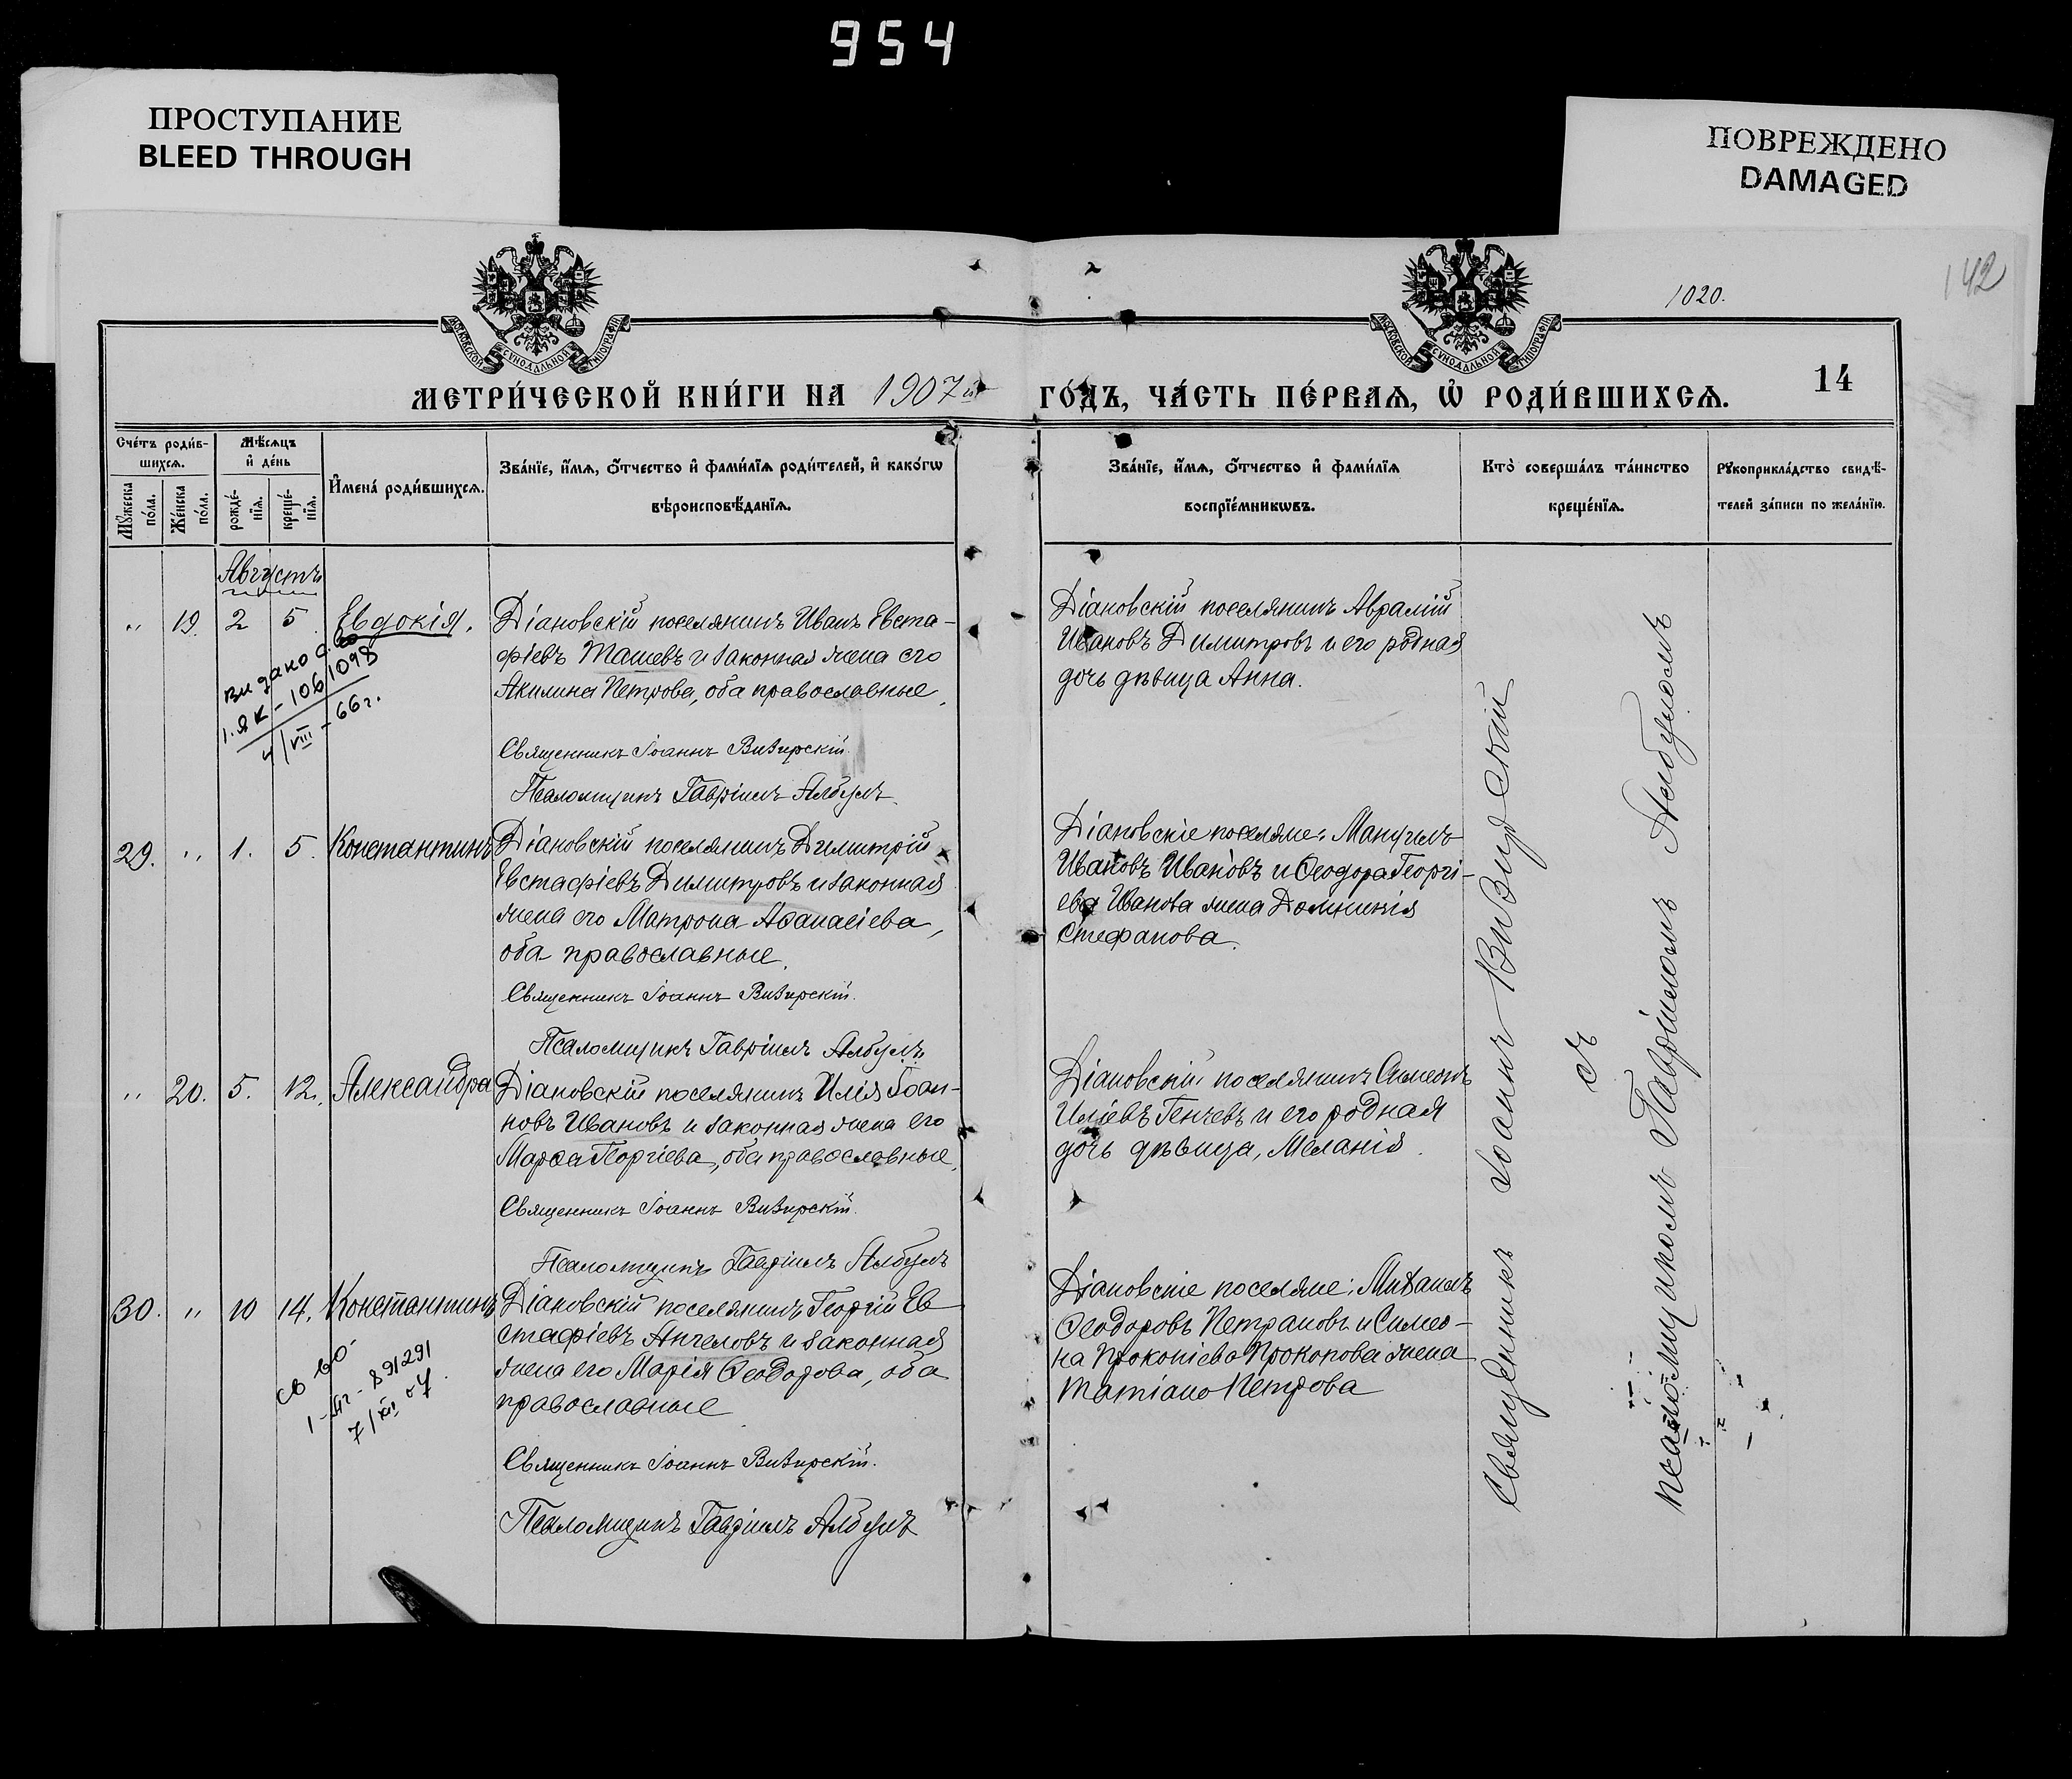 954
ПРОСТУПАНИЕ
BLEED THROUGH
ПОВРЕЖДЕНО
DAMAGED
1020.
142
МОСКОВСКОЙ СѴНОДАЛЬНОЙ ТИПОГРАФІИ
МОСКОВСКОЙ СѴНОДАЛЬНОЙ ТИПОГРАФІИ
МЕТРИ́ЧЕСКОЙ КНИ́ГИ НА 1907 й ГО́ДЪ, ЧА́СТЬ ПЕ́РВАѦ, Ѡ҆ РОДИ́ВШИХСѦ.
14
Сче́тъ роди́в-
шихсѧ.
Мꙋ́жеска по́ла.
Же́нска по́ла.
Мѣ́сѧцъ
и҆ де́нь
рожде́-
нїѧ.
креще́-
нїѧ.
И҆мена̀ роди́вшихсѧ.
Зва́нїе, и҆́мѧ, ѻ҆́тчество и҆ фами́лїѧ роди́телей, и҆ како́гѡ
вѣроисповѣ́данїѧ.
Зва́нїе, и҆́мѧ, ѻ҆́тчество и҆ фами́лїѧ
воспрїе́мникѡвъ.
Кто̀ соверша́лъ та́инство
креще́нїѧ.
Рꙋкоприкла́дство свидѣ́-
телей за́писи по жела́нїю.
Августъ
" 19. 2 5 Евдокія.
Діановскій поселянинъ Иванъ Евста-
фіевъ Ташевъ и законная жена его
Акилина Петрова, оба православные,
Священникъ Іоаннъ Визирскій.
Псаломщикъ Гавріилъ Албулъ.
Діановскій поселянинъ Авралій
Ивановъ Димитровъ и его родная
дочь дѣвица Анна.
Видано
1.ЯК-1061098
4/VIII-66г.
29. " 1. 5. Константинъ
Діановскій поселянинъ Димитрій
Евстафіевъ Димитровъ и законная
жена его Матрона Аѳанасіева,
оба православные.
Священникъ Іоаннъ Визирскій.
Псаломщикъ Гавріилъ Албулъ
Діановскіе поселяне: Мануилъ
Ивановъ Ивановъ и Ѳеодора Георгі-
ева Иванова жена Домникія
Стефанова.
" 20. 5. 12. Александра
Діановскій поселянинъ Илія Іоан-
новъ Ивановъ и законная жена его
Марѳа Георгіева, оба православные,
Священникъ Іоаннъ Визирскій.
Псаломщикъ Гавріилъ Албулъ
Діановскій поселянинъ Симеонъ
Иліевъ Генчевъ и его родная
дочь дѣвица, Меланія.
30. " 10 14. Константинъ
Діановскій поселянинъ Георгій Ев
стафіевъ Ангеловъ и законная
жена его Марія Ѳеодорова, оба
православные
Священникъ Іоаннъ Визирскій.
Псаломщикъ Гавріилъ Албулъ
Діановскіе поселяне: Михаилъ
Ѳеодоровъ Петрановъ и Симео-
на Прокопіева Прокопова жена
Татіана Петрова
св-во
891291
7/XII
Священникъ Іоаннъ Визирскій
съ
псаломщикомъ Гавріиломъ Албуломъ